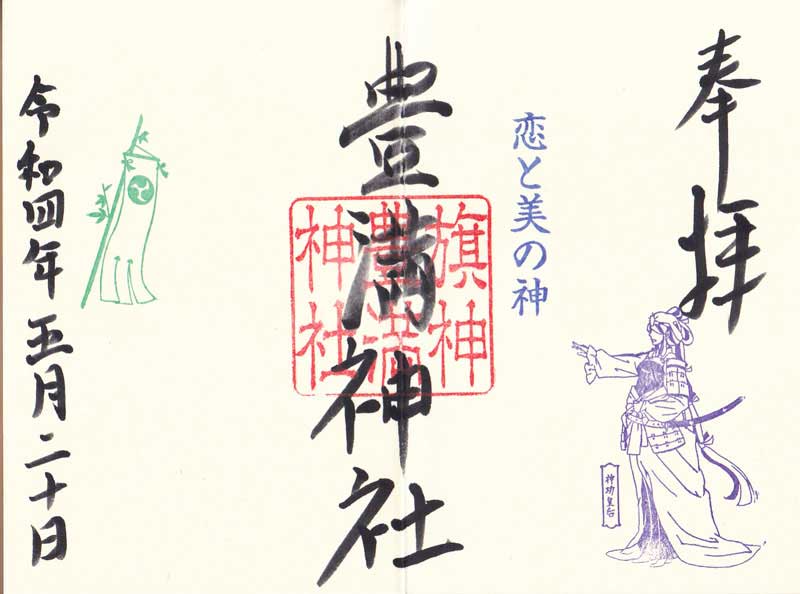 奉拝
恋と美の神
神功皇后
豊満神社
旗神
豊満
神社
令和四年五月二十日